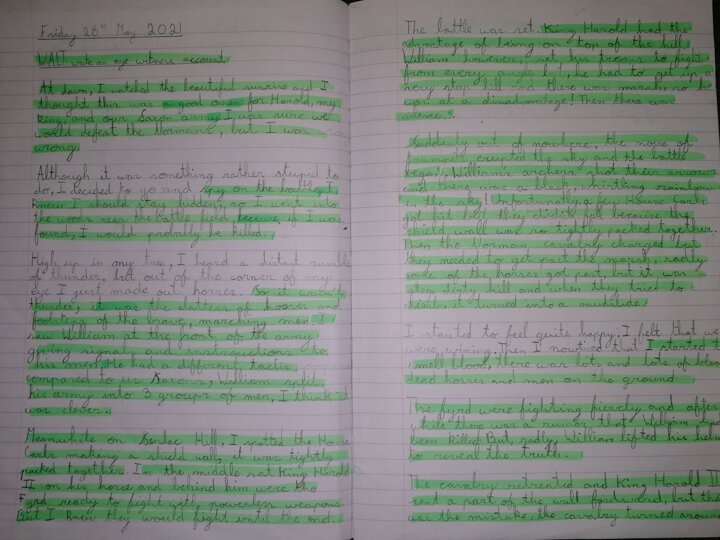 Friday 28th May 2021
WALT write a eye witness account
At dawn, I watched the beautiful sunrise and I
thought this was a good omen for Harold, my
King, and our Saxon army. I was sure we
would defeat the Normans, but I was
wrong.
Although it was something rather stupid to
do, I decided to go and spy on the battle. I
knew I should stay hidden, so I went into
the woods near the battle field because, if I was
found, I would probably be killed.
High up in my tree, I heard a distant rumble
of thunder, but out of the corner of my
eye I just made out horses. So it wasn't
thunder, it was the clatter of hooves and
footsteps of the brave, marching men. I
saw William at the front of the army
giving signals and instructions to
his men. He had a different tactic,
compared to us Saxons, William split
his army into 3 groups of men, I think it
was clever.
Meanwhile on Senlac Hill, I spotted the House
Carls making a shield wall, it was tightly
packed together. In the middle sat King Harold
II on his horse and behind him were the
Fyrd ready to fight with powerless weapons
But I knew they would fight until the end.
The battle was set. King Harold had the
advantage of being on top of the hill.
William however, set his troops to fight
from every angle but, he had to get up a
very steep hill and there was marsh, so he
was at a disadvantage! Then there was
silence.
Suddenly out of nowhere, the noise of
trumpets erupted the sky and the battle
began! William's archers shot their arrows
and there was a black, whistling rainbow
in the sky! Unfortunately a few House Carls
got hit but they didn't fall because the
shield wall was so tightly packed together.
Then the Norman cavalry charged but
they needed to get past the marsh, sadly
some of the horses got past, but it was
steep dirty hill and when they tried to
climb, it turned into a mudslide.
I started to feel quite happy; I felt that we
were winning. Then I noticed that I started to
smell blood, there was lots and lots of blood
dead horses and men on the ground
The fyrd were fighting fiercly and after
while there was a rumor that William had
been killed. But, sadly, William lifted his helm
to reveal the truth.
The cavalry retreated and King Harold II
sent a part of the wall forward, but that
was the mistake, the cavalry turned around